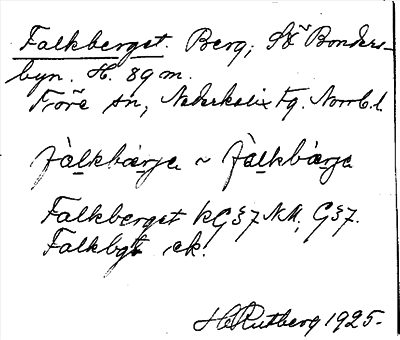 Falkberget. Berg, SÖ Bonders-
byn. H. 89 m.
Töre sn, Nederkalix tg. Norrb. l.
fàlkbærje ~ fàlkbærje
Falkberget kG§7 NM, G§7.
Falkbgt ek.
HRutberg 1925.